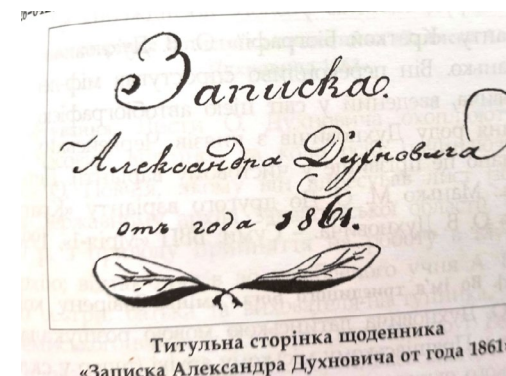 Записка.
Александра Духновича
отъ года 1861.
Титульна сторінка щоденника
«Записка Александра Духновича от года 1861»